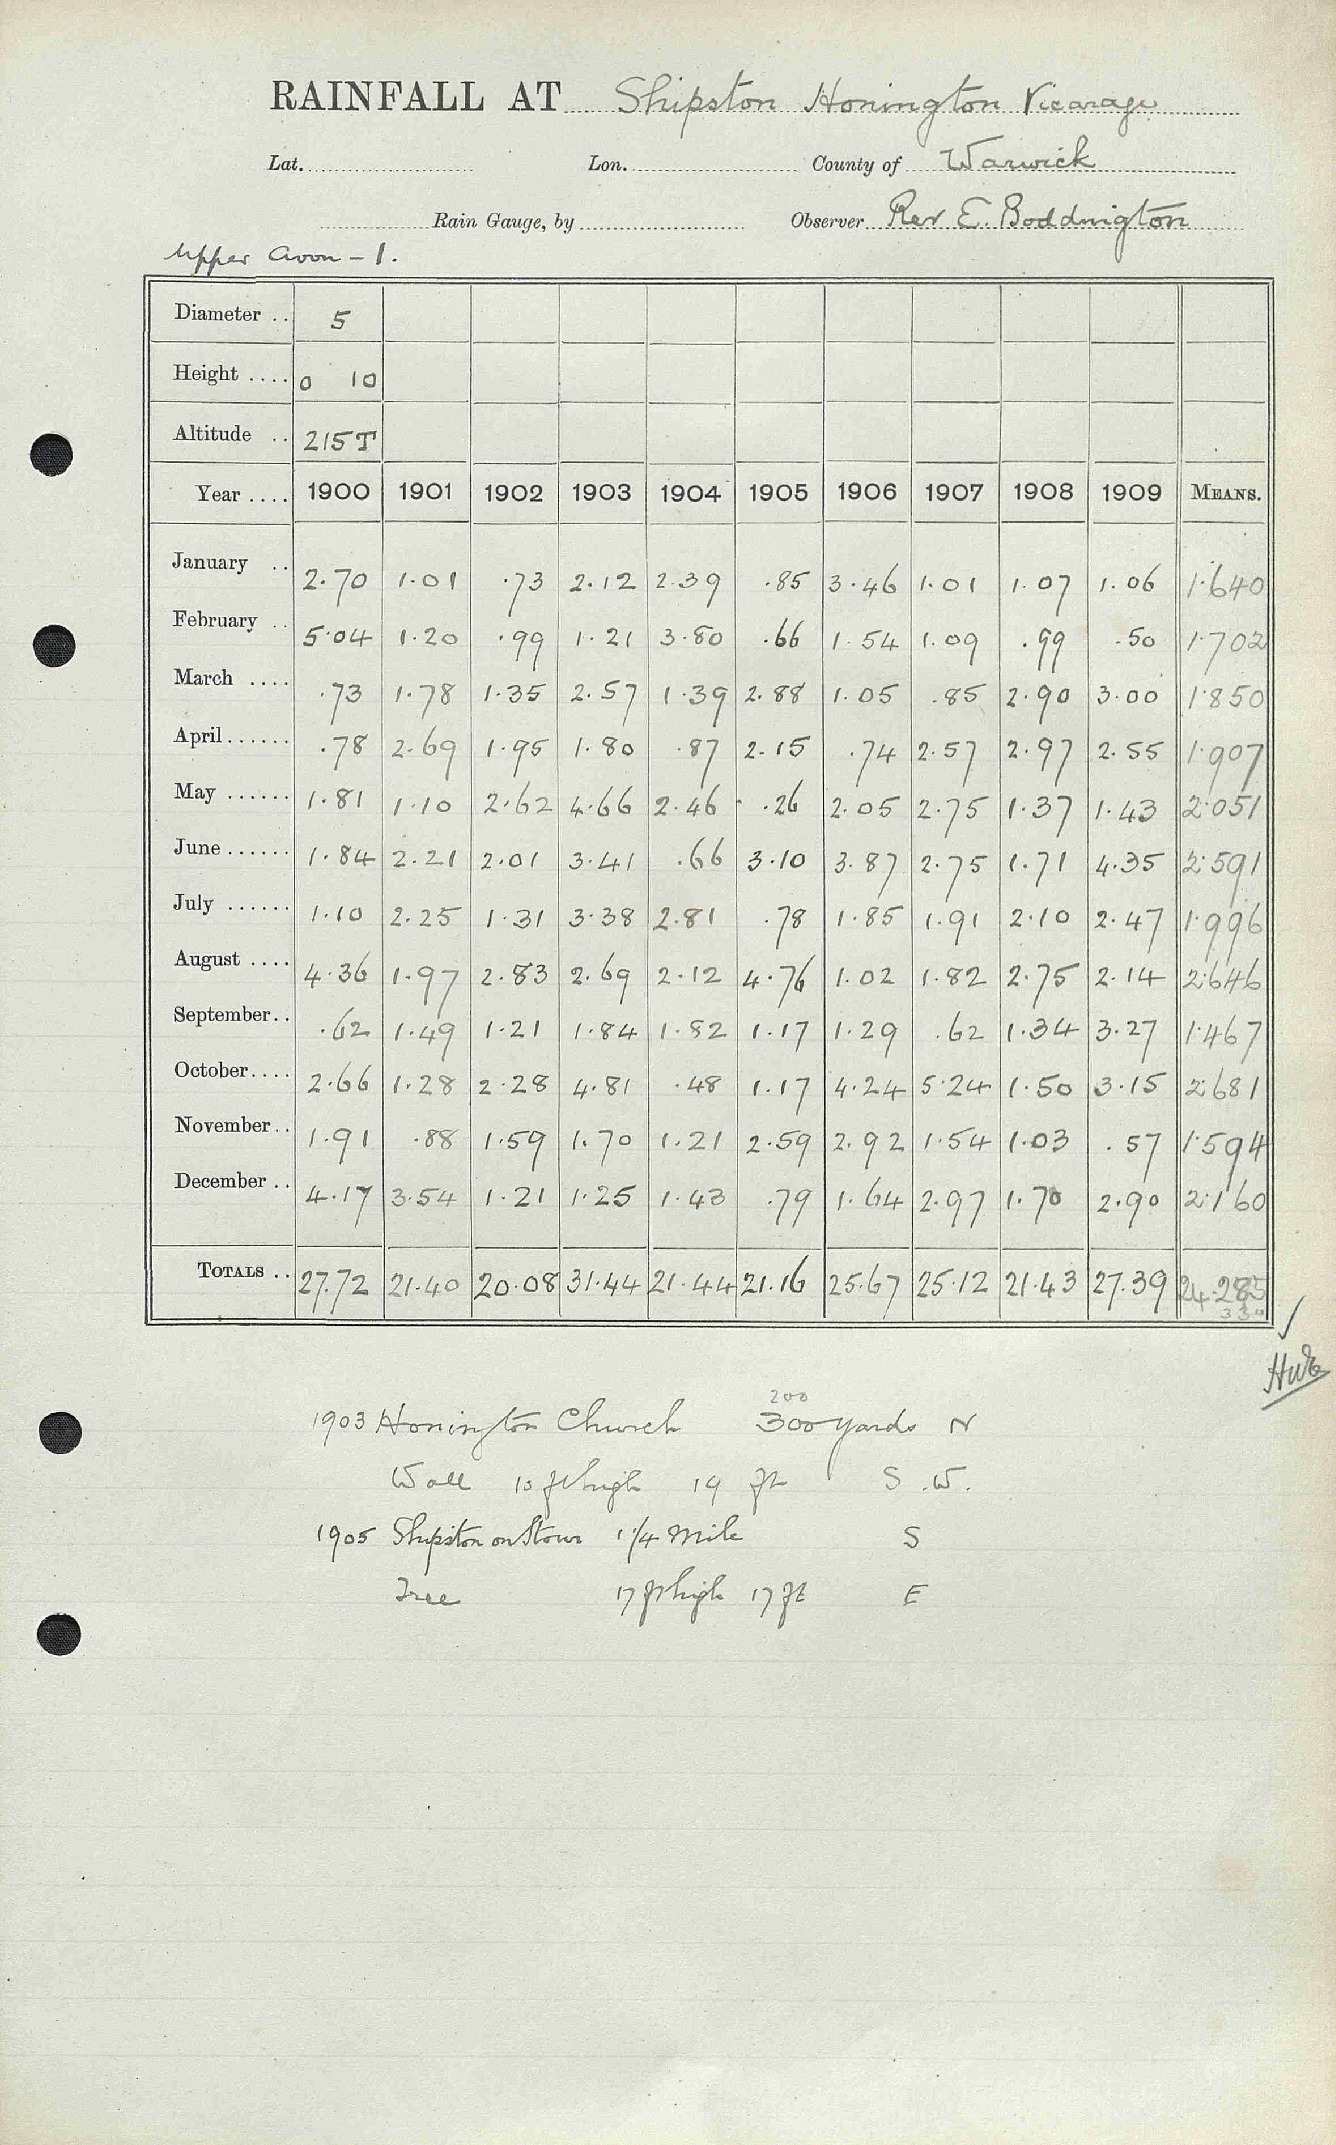 RAINFALL AT Shipston Honington Vicarage
Lat. Lon. County of Warwick
Rain Gauge, by Observer Rev E. Boddington
Upper Avon - 1.
Diameter .. 5
Height .... 0 10
Altitude .. 215T
Year .... 1900 1901 1902 1903 1904 1905 1906 1907 1908 1909 MEANS.
January .. 2.70 1.01 .73 2.12 2.39 .85 3.46 1.01 1.07 1.06 1.640
February .. 5.04 1.20 .99 1.21 3.80 .66 1.54 1.09 .99 .50 1.702
March .... .73 1.78 1.35 2.57 1.39 2.88 1.05 .85 2.90 3.00 1.850
April...... .78 2.69 1.95 1.80 .87 2.15 .74 2.57 2.97 2.55 1.907
May ...... 1.81 1.10 2.62 4.66 2.46 .26 2.05 2.75 1.37 1.43 2.051
June ...... 1.84 2.21 2.01 3.41 .66 3.10 3.87 2.75 1.71 4.35 2.591
July ...... 1.10 2.25 1.31 3.38 2.81 .78 1.85 1.91 2.10 2.47 1.996
August .... 4.36 1.97 2.83 2.69 2.12 4.76 1.02 1.82 2.75 2.14 2.646
September.. .62 1.49 1.21 1.84 1.82 1.17 1.29 .62 1.34 3.27 1.467
October.... 2.66 1.28 2.28 4.81 .48 1.17 4.24 5.24 1.50 3.15 2.681
November.. 1.91 .88 1.59 1.70 1.21 2.59 2.92 1.54 1.03 .57 1.594
December .. 4.17 3.54 1.21 1.25 1.43 .79 1.64 2.97 1.70 2.90 2.160
TOTALS .. 27.72 21.40 20.08 31.44 21.44 21.16 25.67 25.12 21.43 27.39 24.285
200
1903 Honington Church 300 yards N
Wall 10 ft high 19 ft S.W.
1905 Shipston on Stour 1 1/4 Mile S
Tree 17 ft high 17 ft E